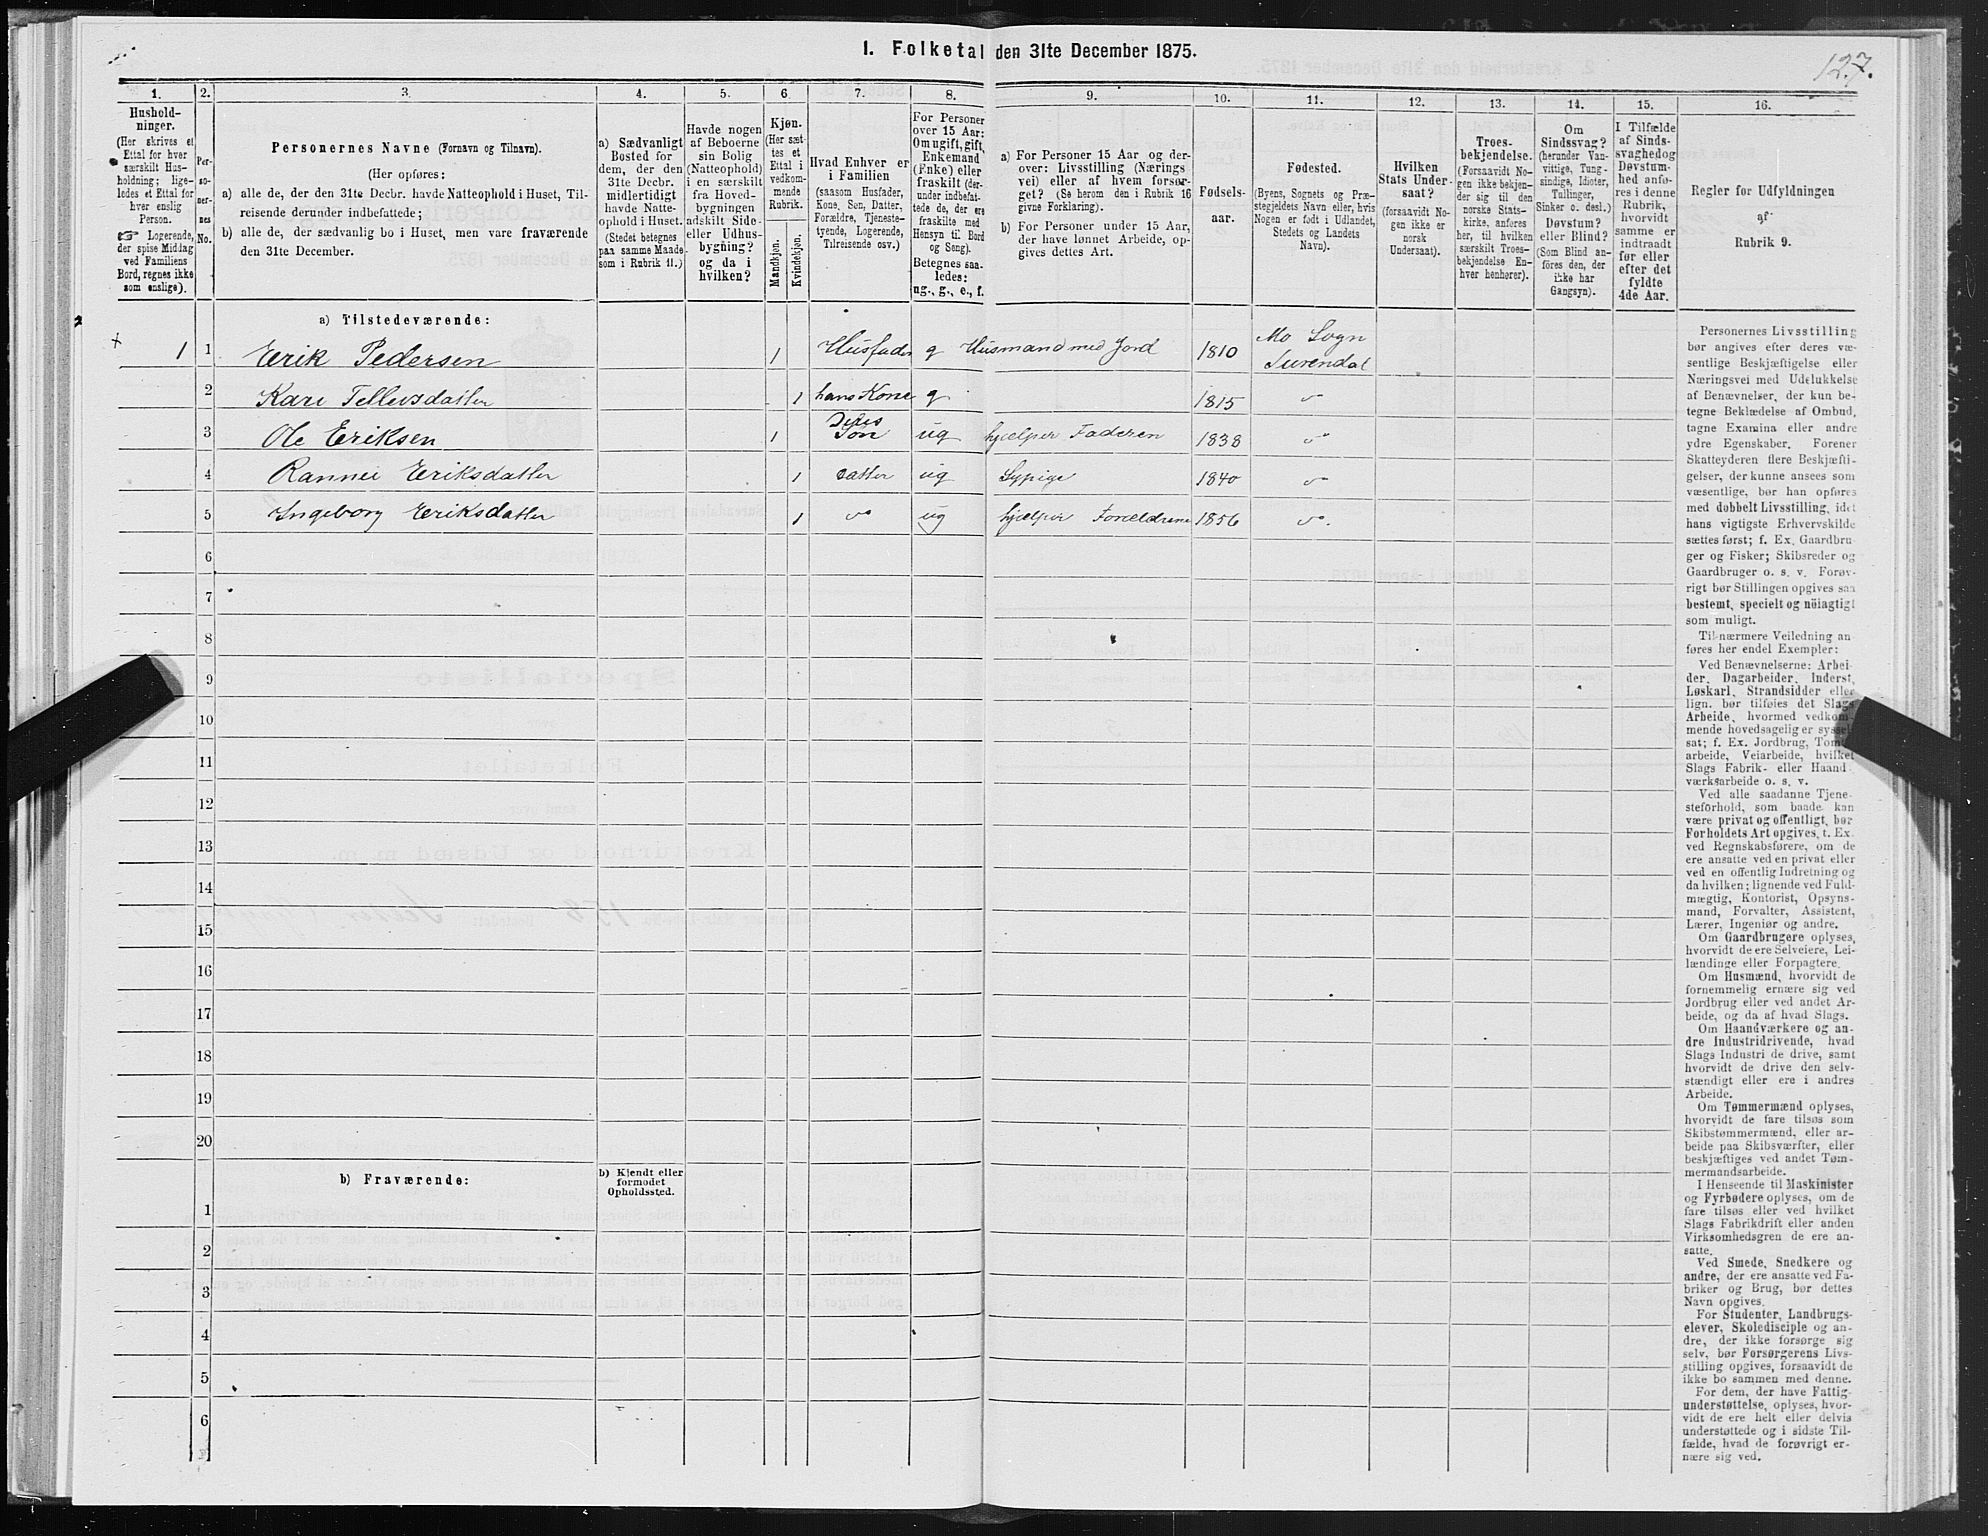 1. Folketal den 31te December 1875.
127.
1.
2.
3.
4.
5.
6.
7.
8.
9.
10.
11.
12.
13.
14.
15.
16.
Hushold-
ninger.
(Her skrives et
Ettal for hver
særskilt Hus-
holdning; lige-
ledes et Ettal for
hver enslig
Person.
☞ Logerende,
der spise Middag
ved Familiens
Bord, regnes ikke
som enslige).
Per-
so-
ner-
nes
No.
Personernes Navne (Fornavn og Tilnavn).
(Her opføres:
a) alle de, der den 31te Decbr. havde Natteophold i Huset, Til-
reisende derunder indbefattede;
b) alle de, der sædvanlig bo i Huset, men vare fraværende
den 31te December.
a) Sædvanligt
Bosted for
dem, der den
31te Decbr.
midlertidigt
havde Natte-
ophold i Huset.
(Stedet betegnes
paa samme Maade
som i Rubrik 11.)
Havde nogen
af Beboerne
sin Bolig
(Natteophold)
i en særskilt
fra Hoved-
bygningen
adskilt Side-
eller Udhus-
bygning?
og da i
hvilken?
Kjøn.
(Her sæt-
tes et
Ettal i
vedkom-
mende
Rubrik.
Mandkjøn.
Kvindekjøn.
Hvad Enhver er
i Familien
(saasom Husfader,
Kone, Søn, Datter,
Forældre, Tjeneste-
tyende, Logerende,
Tilreisende osv.)
For Personer
over 15 Aar:
Om ugift, gift,
Enkemand
(Enke) eller
fraskilt (der-
under indbefat-
tede de, der ere
fraskilte med
Hensyn til Bord
og Seng).
Betegnes saa-
ledes:
ug., g., e., f.
a) For Personer 15 Aar og der-
over: Livsstilling (Nærings
vei) eller af hvem forsør-
get? (Se herom den i Rubrik 16
givne Forklaring).
b) For Personer under 15 Aar,
der have lønnet Arbeide, op-
gives dettes Art.
Fødsels-
aar.
Fødested.
(Byens, Sognets og Præ-
stegjeldets Navn eller, hvis
Nogen er født i Udlandet,
Stedets og Landets
Navn).
Hvilken
Stats Under-
saat?
(forsaavidt No-
gen ikke er
norsk
Undersaat).
Troes-
bekjendelse.
(Forsaavidt No-
gen ikke bekjen-
der sig til den
norske Stats-
kirke, anføres
her, til hvilken
særskilt Troes-
bekjendelse En-
hver henhører).
Om
Sindssvag?
(herunder Van-
vittige, Tung-
sindige, Idioter,
Tullinger,
Sinker o. desl.)
Døvstum?
eller Blind?
(Som Blind an-
føres den, der
ikke har
Gangsyn).
I Tilfælde
af Sinds-
svaghed og
Døvstum-
hed anfø-
res i denne
Rubrik,
hvorvidt
samme er
indtraadt
før eller
efter det
fyldte
4de Aar.
Regler for Udfyldningen
af
Rubrik 9.
a) Tilstedeværende:
1 1 Erik Pedersen 1 Husfader g Husmand med Jord 1810 Mo Sogn
Surendal
2 Kari Tellevsdatter 1 hans Kone g 1815 "
3 Ole Eriksen 1 Deres
Søn ug hjælper Faderen 1838 "
4 Rannei Eriksdatter 1 datter ug Sypige 1840 "
5 Ingeborg Eriksdatter 1 " ug hjælper Forældrene 1856 "
6
7
8
9
10
11
12
13
14
15
16
17
18
19
20
b) Fraværende:
b) Kjendt eller
formodet
Opholdssted.
1
2
3
4
5
6
Personernes Livsstilling
bør angives efter deres væ-
sentlige Beskjæftigelse eller
Næringsvei med Udelukkelse
af Benævnelser, der kun be-
tegne Beklædelse af Ombud,
tagne Examina eller andre
ydre Egenskaber. Forener
Skatteyderen flere Beskjæfti-
gelser, der kunne ansees som
væsentlige, bør han opføres
med dobbelt Livsstilling, idet
hans vigtigste Erhvervskilde
sættes først; f. Ex. Gaardbru-
ger og Fisker; Skibsreder og
Gaardbruger o. s. v. Forøv-
rigt bør Stillingen opgives saa
bestemt, specielt og nöiagtigt
som muligt.
Til nærmere Veiledning an
føres her endel Exempler:
Ved Benævnelserne: Arbei-
der, Dagarbeider, Inderst,
Løskarl, Strandsidder eller
lign. bør tilføies det Slags
Arbeide, hvormed vedkom-
mende hovedsagelig er syssel
sat; f. Ex. Jordbrug, Tomte-
arbeide, Veiarbeide, hvilket
Slags Fabrik- eller Haand-
værksarbeide o. s. v.
Ved alle saadanne Tjene-
steforhold, som baade kan
være privat og offentligt, bør
Forholdets Art opgives, t. Ex.
ved Regnskabsførere, om de
ere ansatte ved en privat eller
ved en offentlig Indretning og
da hvilken; lignende ved Fuld-
mægtig, Kontorist, Opsyns-
mand, Forvalter, Assistent,
Lærer, Ingeniør og andre.
Om Gaardbrugere oplyses,
hvorvidt de ere Selveiere, Lei-
lændinge eller Forpagtere.
Om Husmænd, hvorvidt de
fornemmelig ernære sig ved
Jordbrug eller ved andet Ar-
beide, og da af hvad Slags.
Om Haandværkere og an-
dre Industridrivende, hvad
Slags Industri de drive, samt
hvorvidt de drive den selv-
stændigt eller ere i andres
Arbeide.
Om Tømmermænd oplyses,
hvorvidt de fare tilsøs som
Skibstømmermænd, eller ar-
beide paa Skibsværfter, eller
beskjæftiges ved andet Tøm-
mermandsarbeide.
I Henseende til Maskinister
og Fyrbødere oplyses, om de
fare tilsøs eller ved hvilket
Slags Fabrikdrift eller anden
Virksomhedsgren de ere an-
satte.
Ved Smede, Snedkere og
andre, der ere ansatte ved Fa-
briker og Brug, bør dettes
Navn opgives.
For Studenter, Landbrugs-
elever, Skoledisciple og an-
dre, der ikke forsørge sig
selv, bør Forsørgerens Livs-
stilling opgives, forsaavidt de
ikke bo sammen med denne.
For dem, der have Fattig-
understøttelse, oplyses, hvor-
vidt de ere helt eller delvis
understøttede og i sidste Til-
fælde, hvad de forøvrigt er-
nære sig ved.